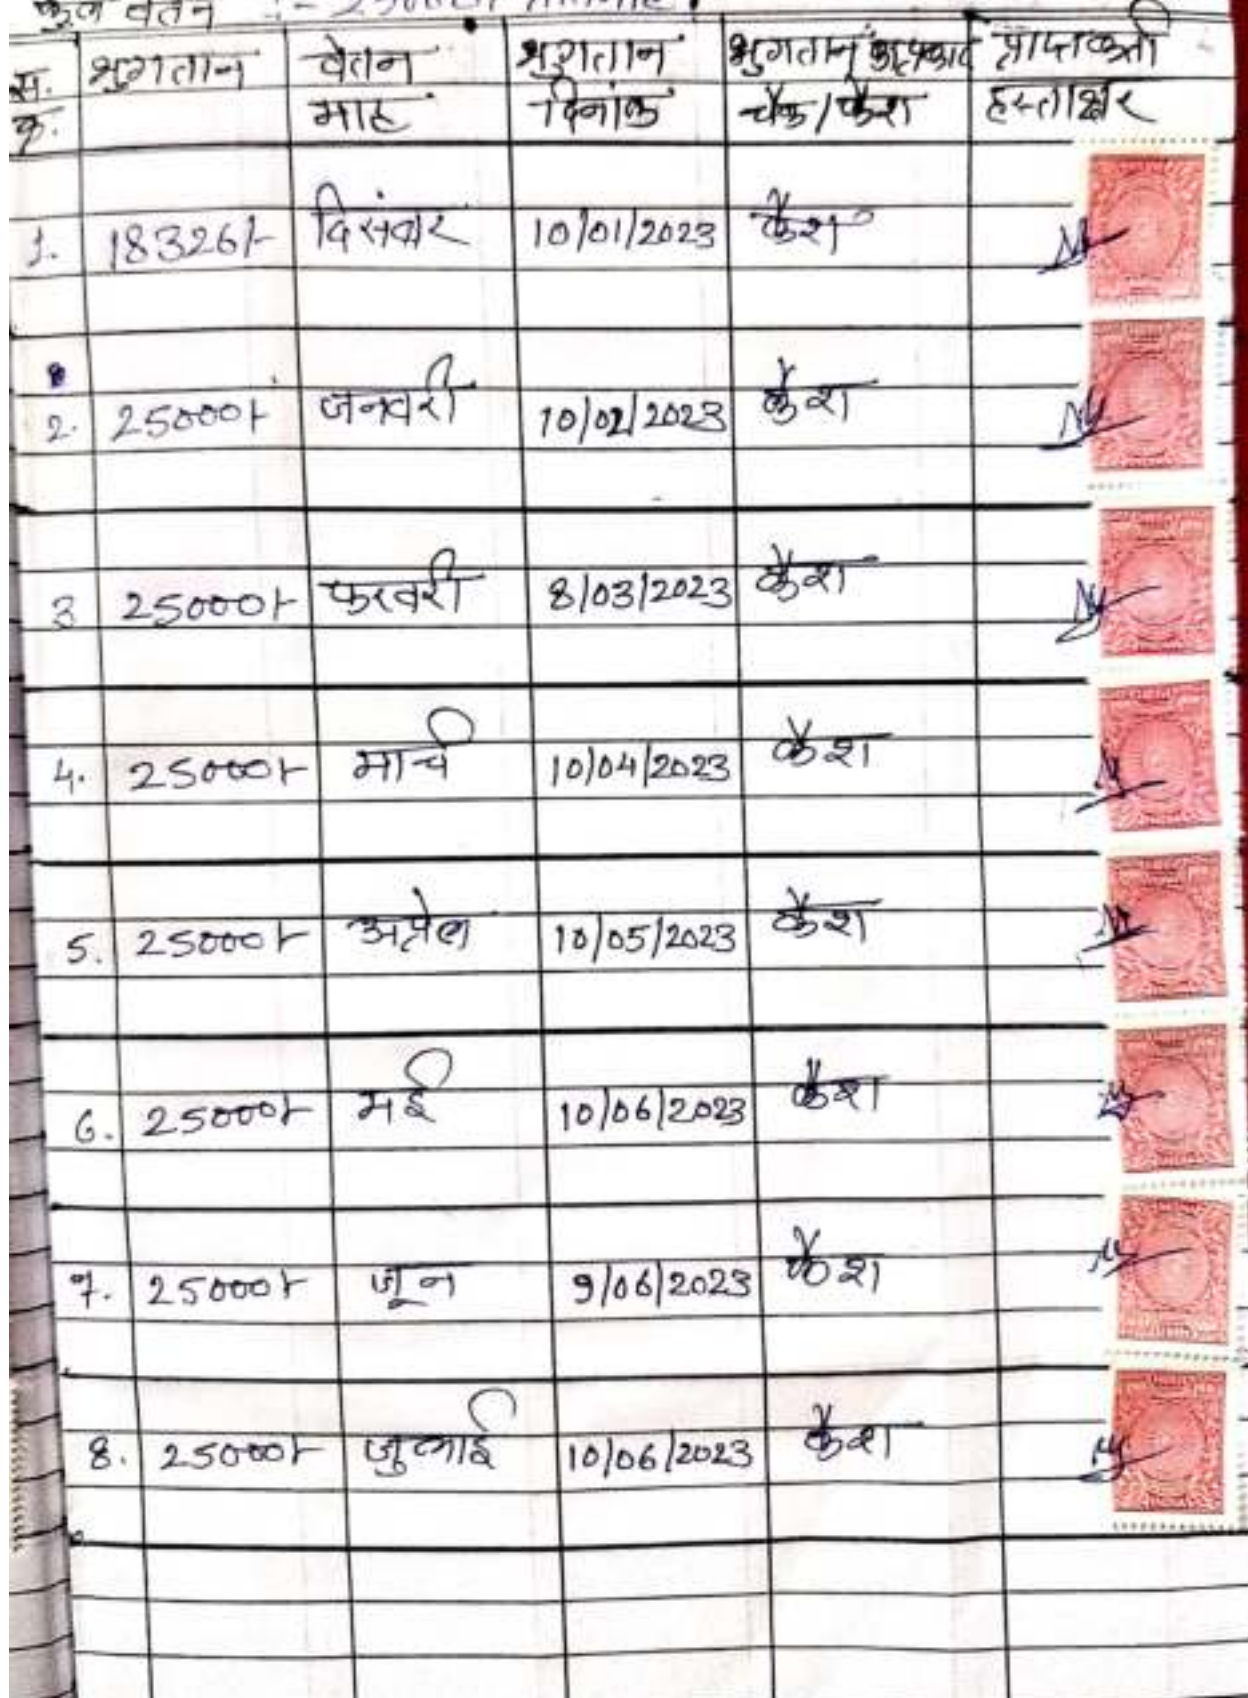 कुल वेतन :- 25000/-
स. क्र. भुगतान वेतन माह भुगतान दिनांक भुगतान का प्रकार चेक/कैश प्राप्तकर्ता हस्ताक्षर
1. 18326/- दिसंबर 10/01/2023 कैश
2. 25000/- जनवरी 10/02/2023 कैश
3 25000/- फरवरी 8/03/2023 कैश
4. 25000/- मार्च 10/04/2023 कैश
5. 25000/- अप्रेल 10/05/2023 कैश
6. 25000/- मई 10/06/2023 कैश
7. 25000/- जून 9/06/2023 कैश
8. 25000/- जुलाई 10/06/2023 कैश